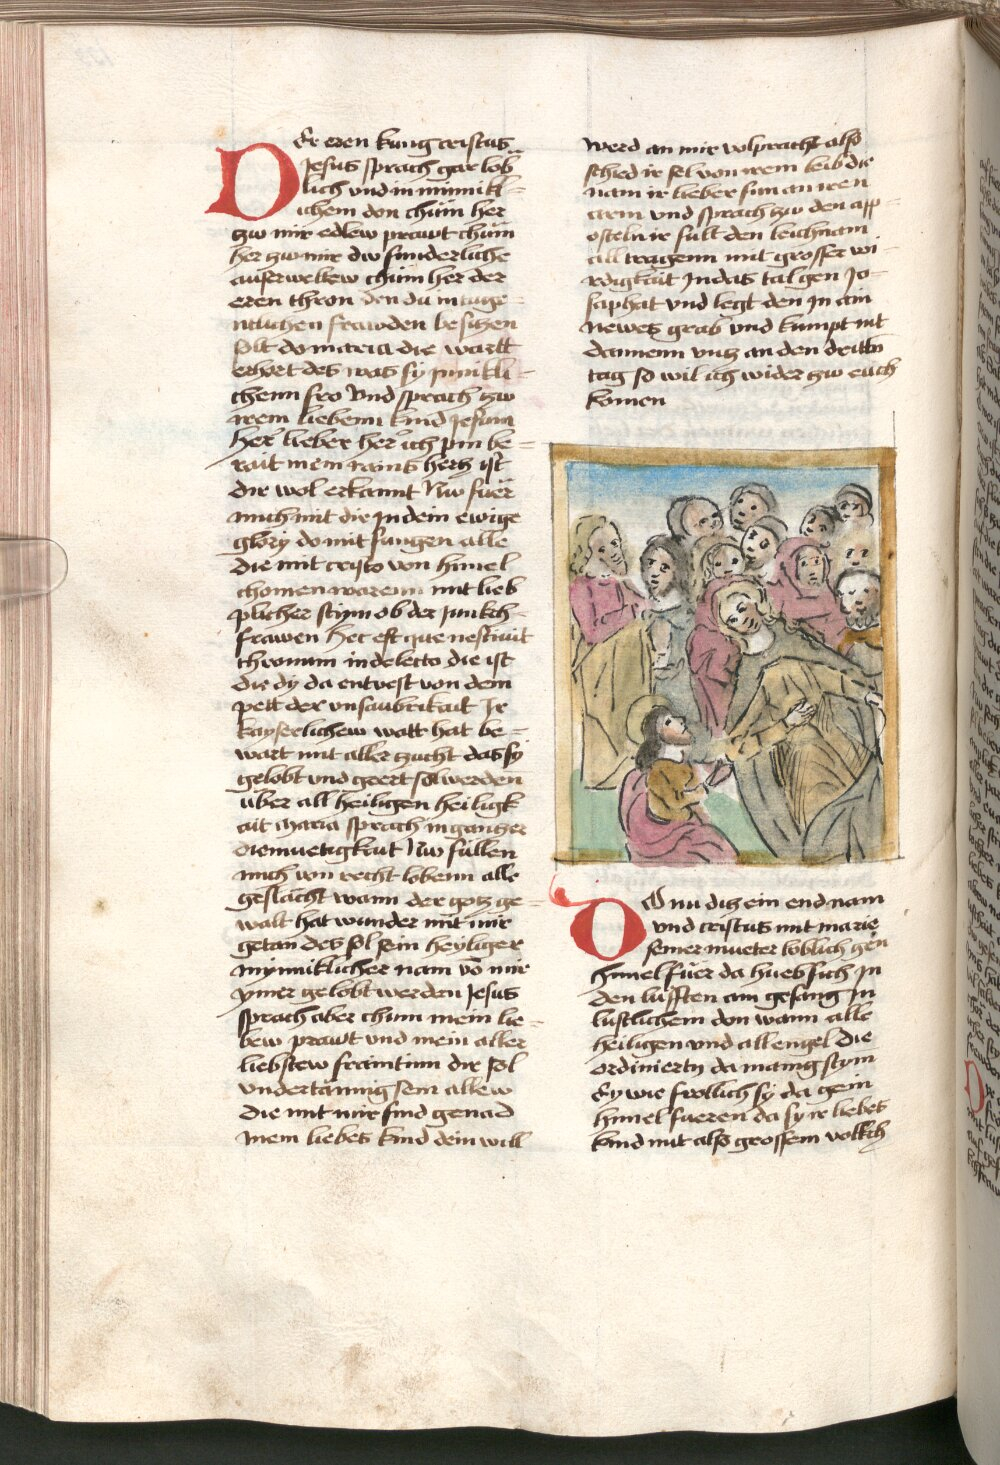 Der eren kung cristus
Jesus sprach gar lob
lich vnd in minnikl=
ichem don chüm her
zw mir edlew prawt chüm
her zw mir dw sunderliche
auserweltew chüm her der
eren thron den du in tuge=
ntlichen frawden besitzen
solt do maria die wartt
erhort des was sy minikli=
chenn fro Vnd sprach zw
irem liebenn kind Jesum
her lieber her ich pin be=
rait mein rains hertz ist
dir wol erkannt Nw füer
mich mit dir In dein ewige
glory do mit sungen alle
die mit cristo von himel
chomen warenn mit lieb
plicher stym ob der Junkch=
frawen Hec est que nesciuit
thronum in delecto die ist
die dy da entvest von dem
pett der vnsaubrikait Ir
kayserlichew watt hat be=
wart mit aller zucht das sy
gelobt vnd geert sol werden
über all heiligen heiligk
ait Maria sprach in gantzer
diemuetigkait Nw süllen
mich von recht lobenn alle
geslächt wann der gotz ge=
walt hat wunder mit mir
getan des sol sein heyliger
mynniklicher nam vō mir
ymer gelobt werden Jesus
sprach aber chum mein lie=
bew prawt vnd mein aller
liebstew fraintinn dir sol
vndertannig sein allew
die mit mir sind genad
mein liebes kind dein will
werd an mir volpracht also
schied ir sel von irem leib die
nam ir lieber sun an iren
arm vnd sprach zw den app=
osteln ir sullt den leichnam
all tragenn mit grosser wi=
rdigkait In das tal gen Jo=
saphat vnd legt den In ain
newes grab vnd kumpt nit
dannenn vntz an den dritten
tag so wil ich wider zw euch
komen
Do nu ditz ein end nam
vnd cristus mit marie
seiner mueter loblich gen
himel füer da hueb sich In
den lüfften ain gesang In
lustlichem don wann alle
heiligen vnd all engel die
ordiniertn da manig stym
Ey wie frolich sy da gein
himel fueren da sy ir liebes
kind mit also grossem volkch